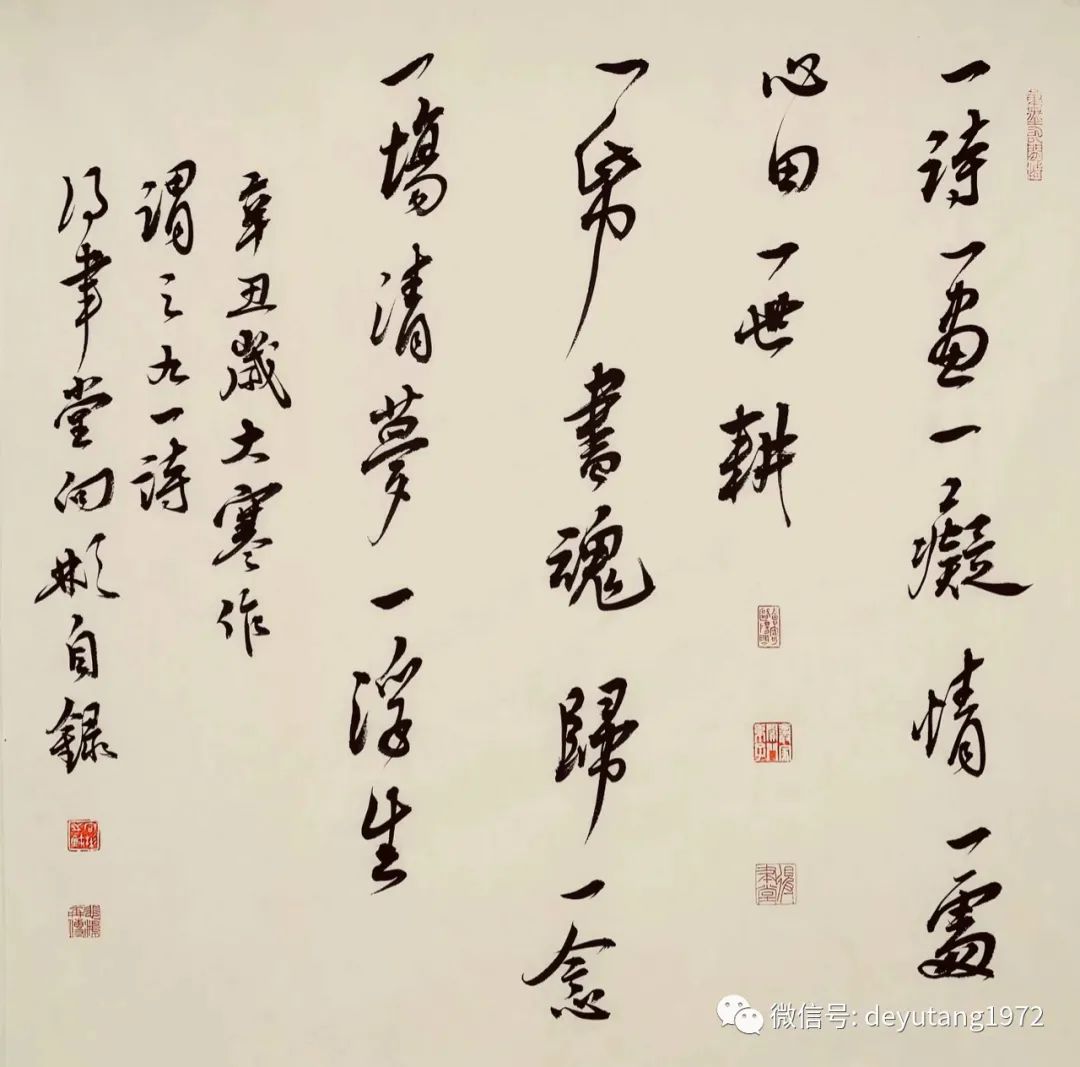 一詩一畫一癡情一處
心田一世耕
一帋書魂歸一念
一場清夢一浮生
辛丑歲大寒作
謂之九一詩
得聿堂向彬自錄
微信号: deyutang1972